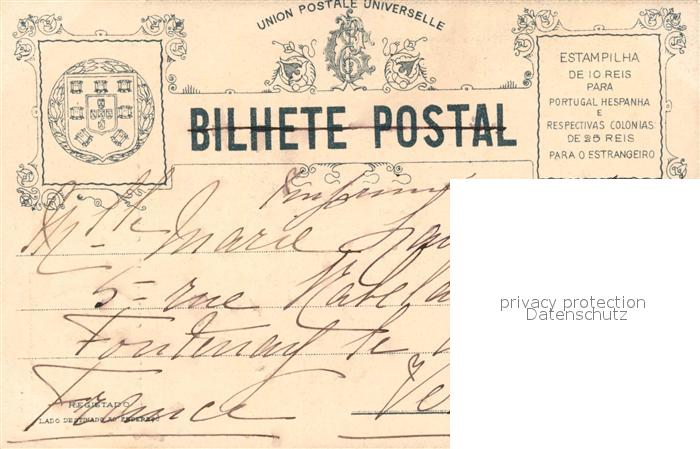 UNION POSTALE UNIVERSELLE
BILHETE POSTAL
ESTAMPILHA
DE 10 REIS
PARA
PORTUGAL HESPANHA
E
RESPECTIVAS COLONIAS
DE 25 REIS
PARA O ESTRANGEIRO
Mlle Marie
5 - rue Rabela
Fontenay le
France Ve
REGISTADO
LADO DESTINADO AO ENDEREÇO
privacy protection
Datenschutz